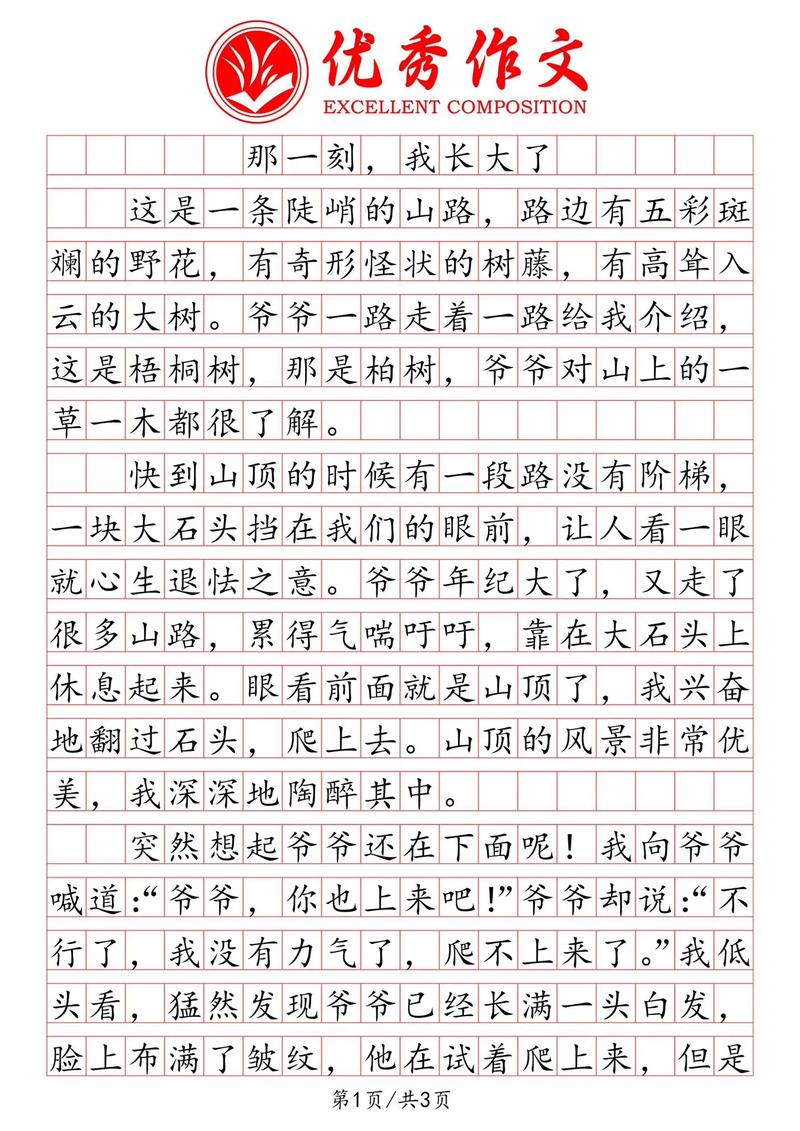 优秀作文
EXCELLENT COMPOSITION
那一刻，我长大了
这是一条陡峭的山路，路边有五彩斑
斓的野花，有奇形怪状的树藤，有高耸入
云的大树。爷爷一路走着一路给我介绍，
这是梧桐树，那是柏树，爷爷对山上的一
草一木都很了解。
快到山顶的时候有一段路没有阶梯，
一块大石头挡在我们的眼前，让人看一眼
就心生退怯之意。爷爷年纪大了，又走了
很多山路，累得气喘吁吁，靠在大石头上
休息起来。眼看前面就是山顶了，我兴奋
地翻过石头，爬上去。山顶的风景非常优
美，我深深地陶醉其中。
突然想起爷爷还在下面呢！我向爷爷
喊道：“爷爷，你也上来吧！”爷爷却说：“不
行了，我没有力气了，爬不上来了。”我低
头看，猛然发现爷爷已经长满一头白发，
脸上布满了皱纹，他在试着爬上来，但是
第1页/共3页